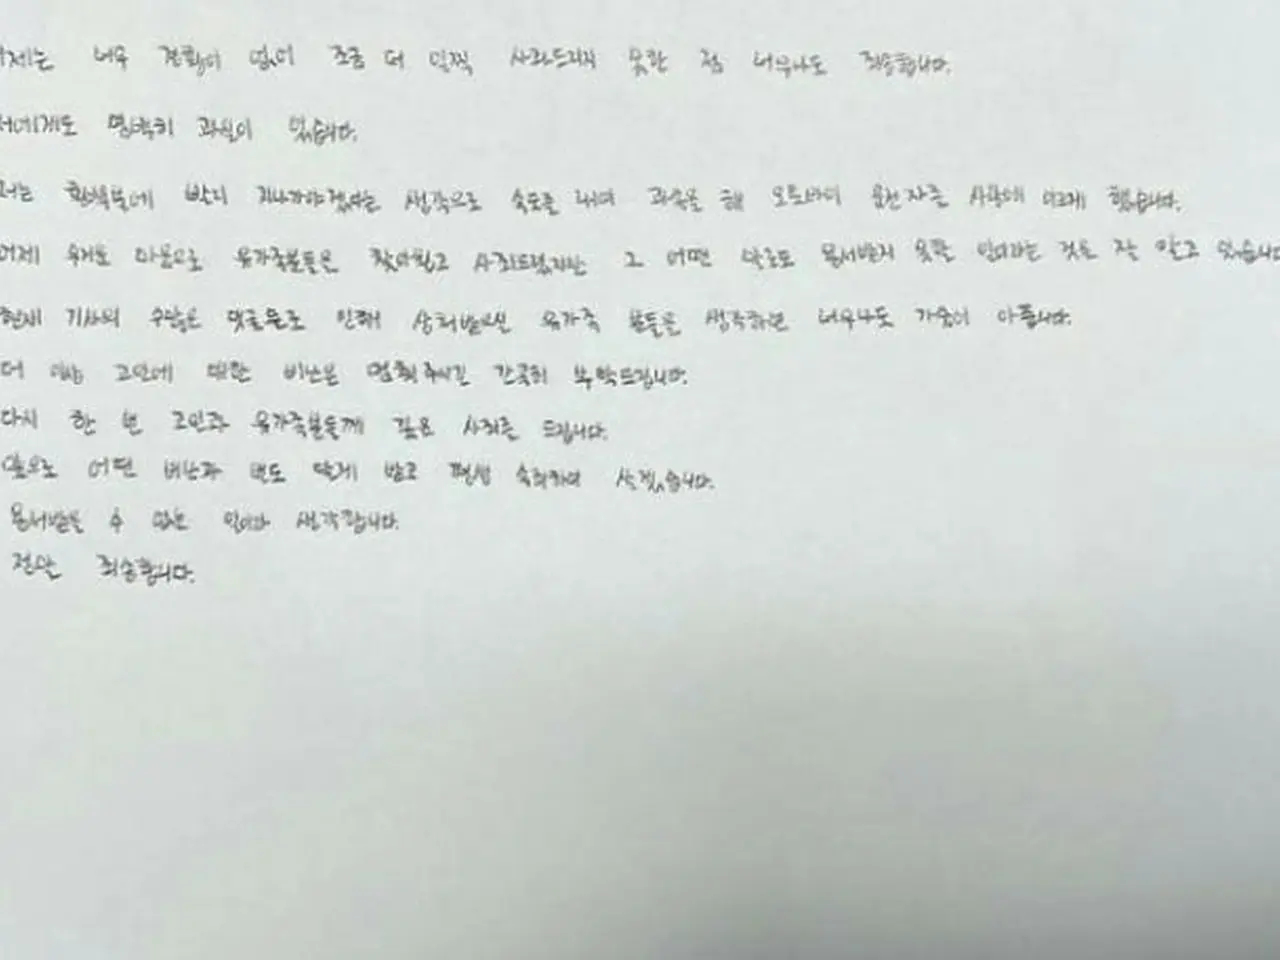 어제는 너무 경황이 없어 조금 더 일찍 사과드리지 못한 점 너무나도 죄송합니다.
저에게도 명백히 과실이 있습니다.
저는 황색불에 빨리 지나가야겠다는 생각으로 속도를 내며 과속을 해 오토바이 운전자를 사망에 이르게 했습니다.
어제 무거운 마음으로 유가족분들을 찾아뵙고 사죄드렸지만 그 어떤 말로도 용서받지 못할 일이라는 것을 잘 알고 있습니다
현재 기사의 수많은 댓글들로 인해 상처받으실 유가족 분들을 생각하면 너무나도 가슴이 아픕니다.
더 이상 고인에 대한 비난은 멈춰주시길 간곡히 부탁드립니다.
다시 한 번 고인과 유가족분들께 깊은 사죄를 드립니다.
앞으로 어떤 비난과 벌도 달게 받고 평생 속죄하며 살겠습니다.
용서받을 수 없는 일이라 생각합니다.
정말 죄송합니다.